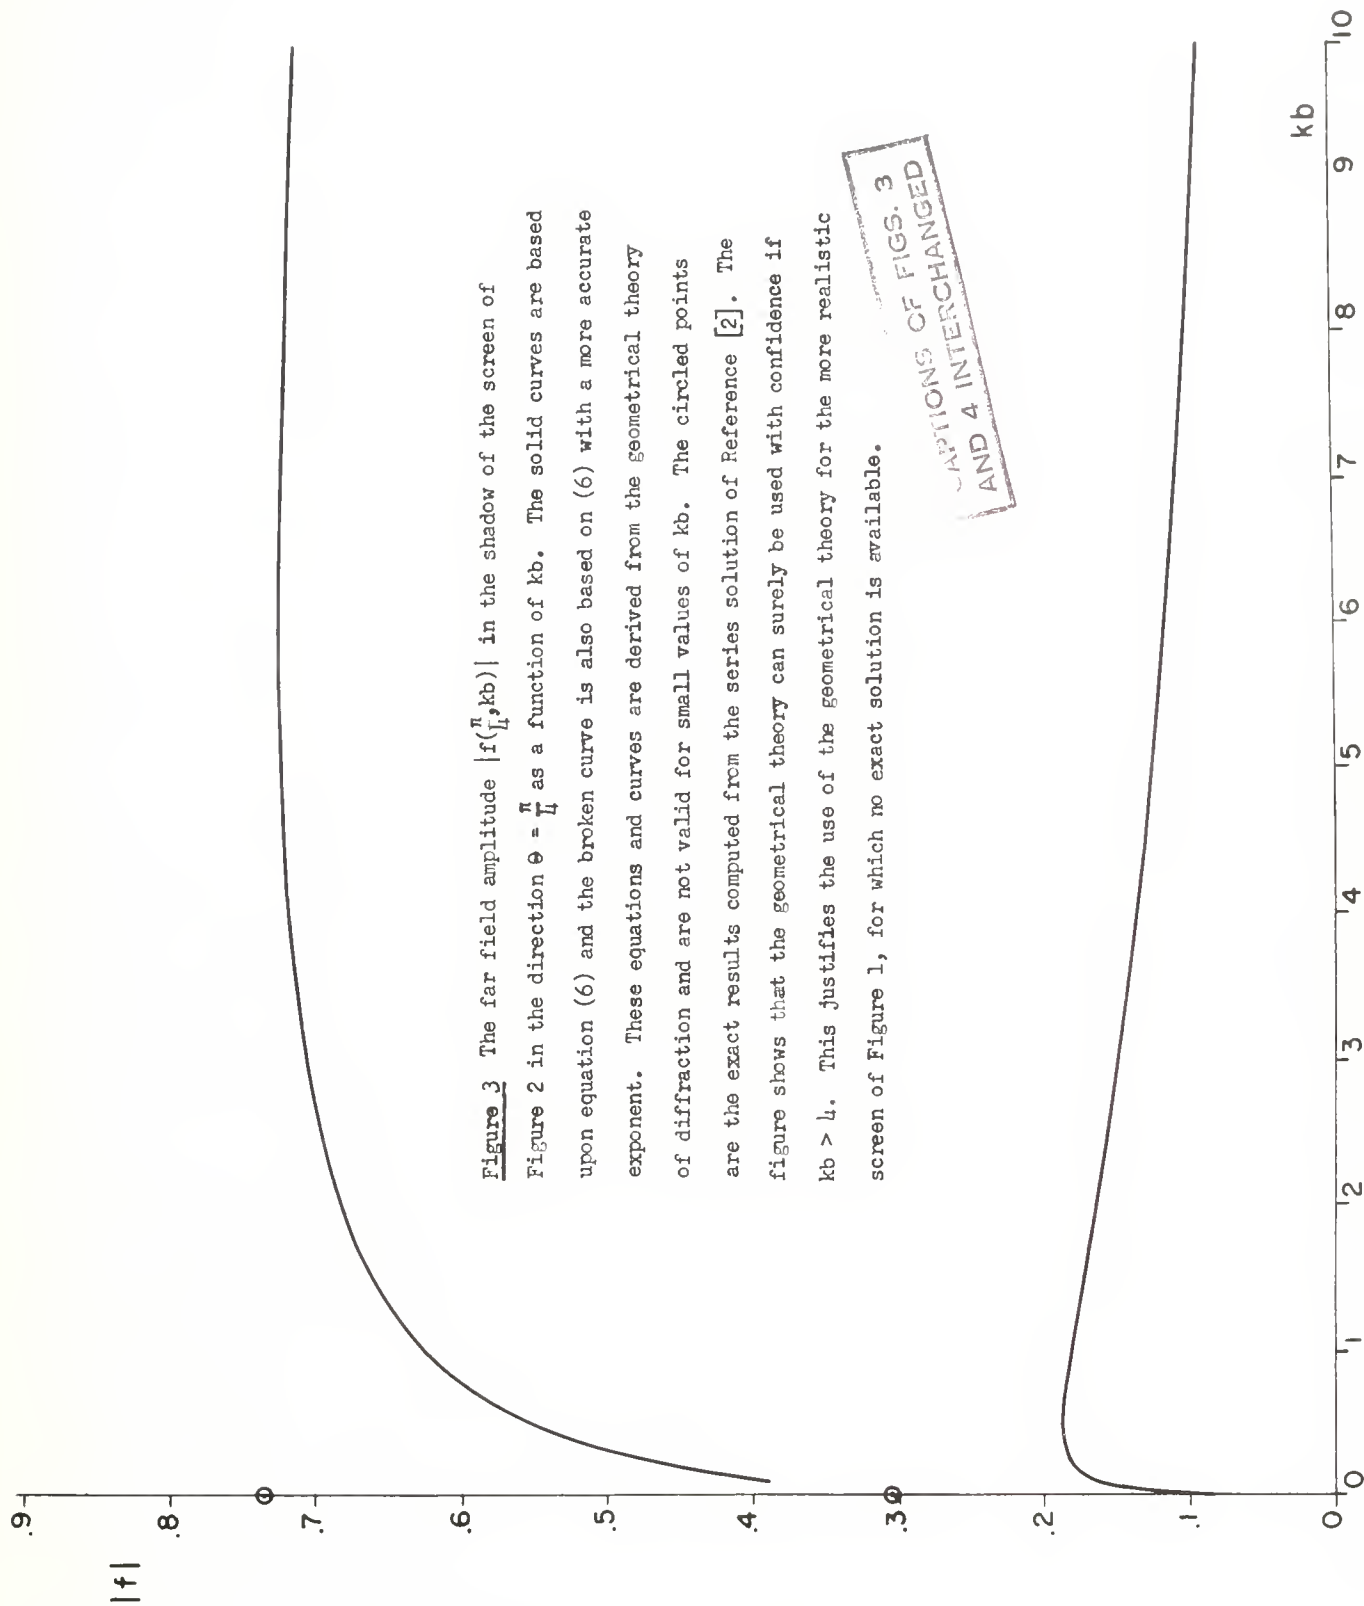 |f|
.9
.8
.7
.6
.5
.4
.3
.2
.1
0
Figure 3 The far field amplitude |f(π/4,kb)| in the shadow of the screen of
Figure 2 in the direction θ = π/4 as a function of kb. The solid curves are based
upon equation (6) and the broken curve is also based on (6) with a more accurate
exponent. These equations and curves are derived from the geometrical theory
of diffraction and are not valid for small values of kb. The circled points
are the exact results computed from the series solution of Reference [2]. The
figure shows that the geometrical theory can surely be used with confidence if
kb > 4. This justifies the use of the geometrical theory for the more realistic
screen of Figure 1, for which no exact solution is available.
CAPTIONS OF FIGS. 3
AND 4 INTERCHANGED
0 1 2 3 4 5 6 7 8 9 10
kb